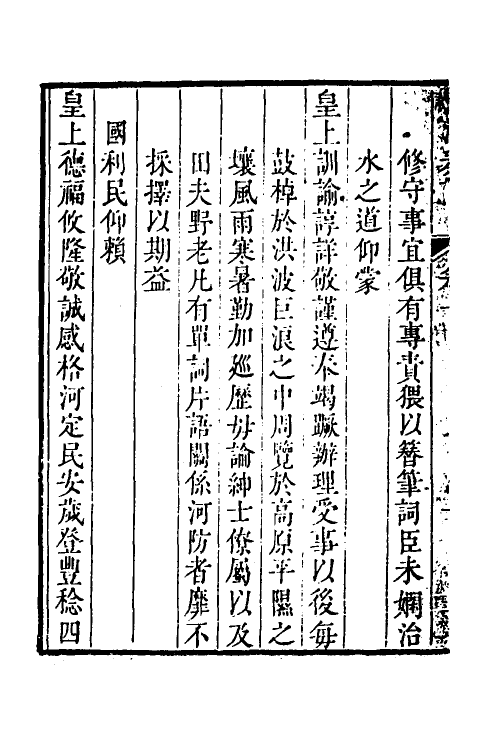 修守事宜俱有專責猥以簪筆詞臣未嫻治
水之道仰蒙
皇上訓諭諄詳敬謹遵奉竭蹶辦理受事以後每
鼓棹於洪波巨浪之中周覽於高原平隰之
壤風雨寒暑勤加廵歷毋論紳士僚屬以及
田夫野老凡有單詞片語關係河防者靡不
採擇以期益
國利民仰賴
皇上德福攸隆敬誠感格河定民安歲登豐稔四